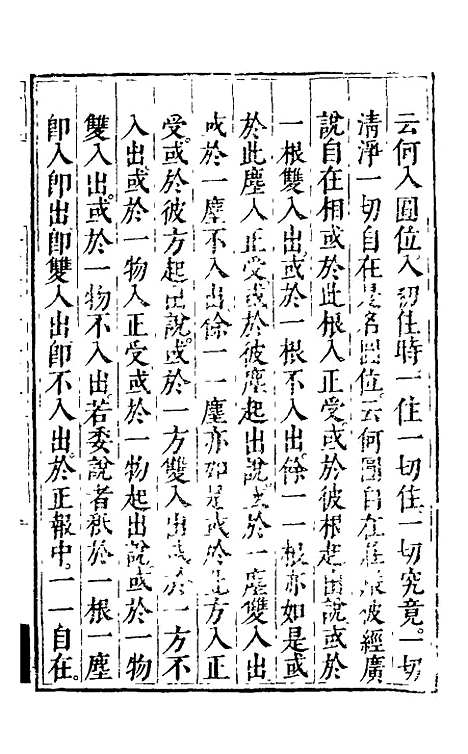 云何入圓位入初住時一住一切住一切究竟一切
清淨一切自在是名圓位云何圓自在莊嚴彼經廣
說自在相或於此根入正受或於彼根起出說或於
一根雙入出或於一根不入出餘一一根亦如是或
於此塵入正受或於彼塵起出說或於一塵雙入出
或於一塵不入出餘一一塵亦如是或於此方入正
受或於彼方起出說或於一方雙入出或於一方不
入出或於一物入正受或於一物起出說或於一物
雙入出或於一物不入出若委說者秖於一根一塵
即入即出即雙入出即不入出於正報中一一自在